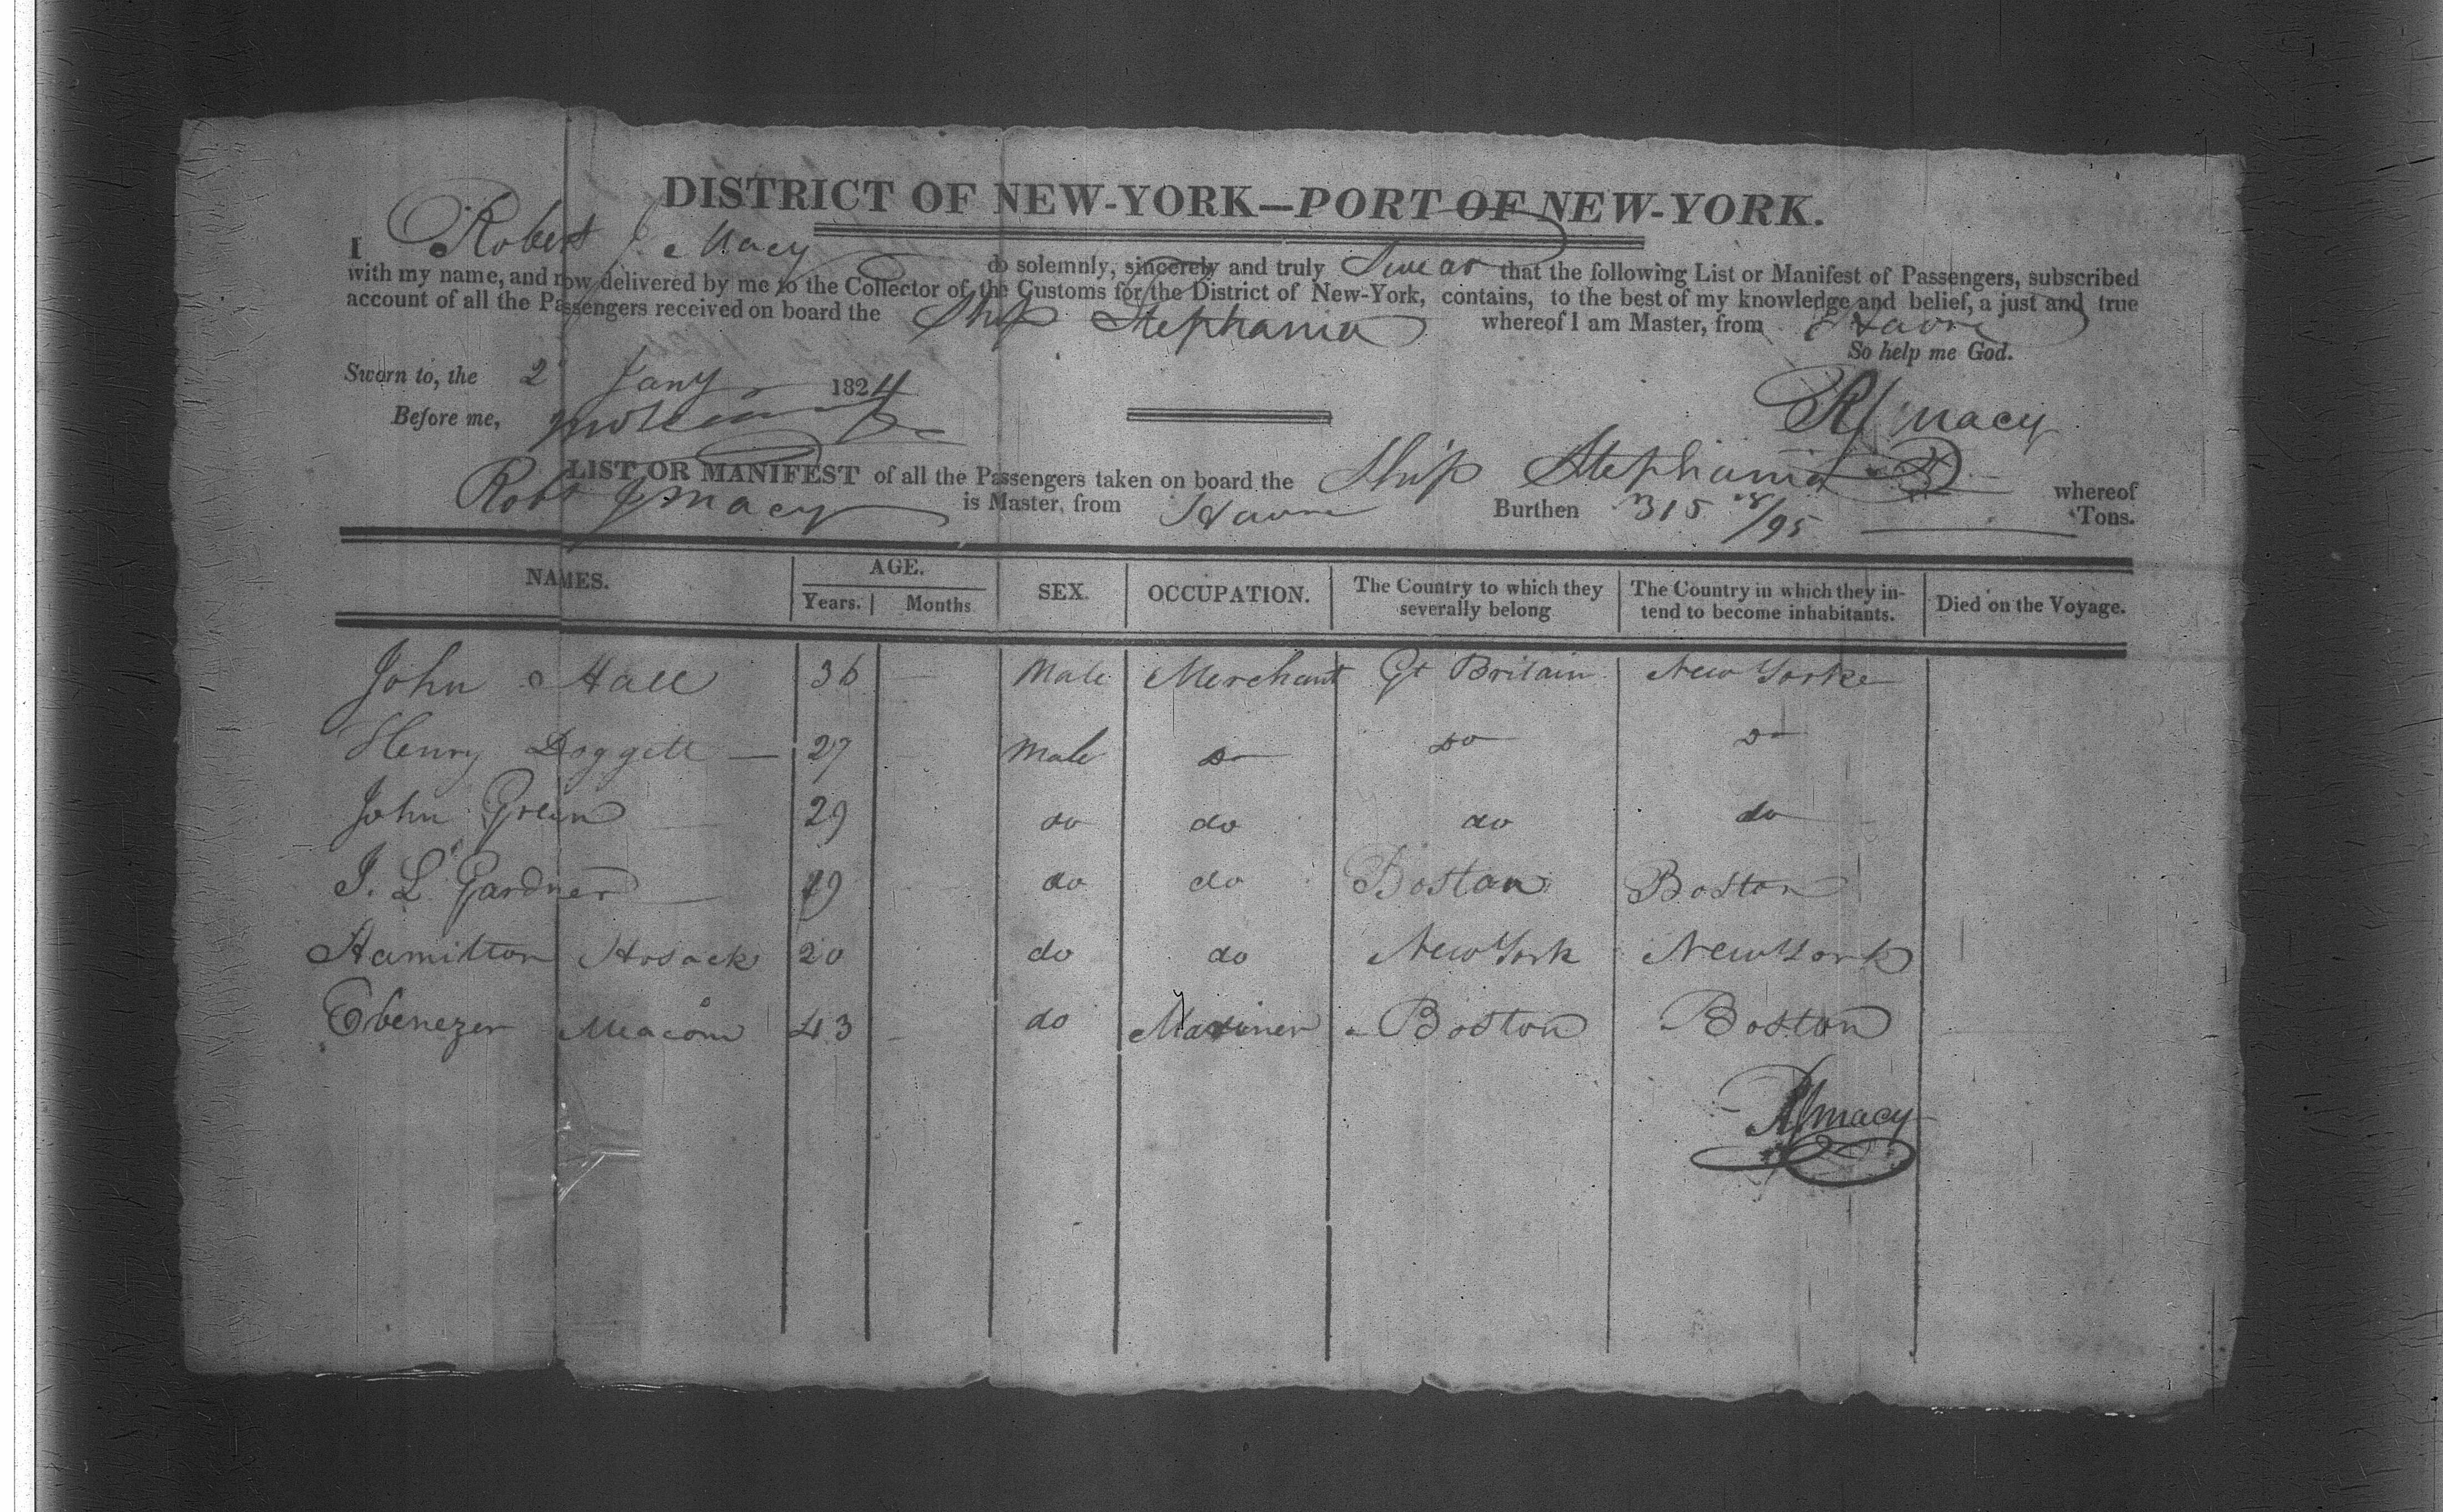 DISTRICT OF NEW-YORK—PORT OF NEW-YORK.
I Robert J. Macy do solemnly, sincerely and truly Swear that the following List or Manifest of Passengers, subscribed
with my name, and now delivered by me to the Collector of the Customs for the District of New-York, contains, to the best of my knowledge and belief, a just and true
account of all the Passengers received on board the Ship Stephania whereof I am Master, from Havre
So help me God.
Sworn to, the 2 Jany 1824
Before me,
RJ Macy
LIST OR MANIFEST of all the Passengers taken on board the Ship Stephania whereof
Robt J Macy is Master, from Havre Burthen 315 /95 Tons.
NAMES. AGE. SEX. OCCUPATION. The Country to which they severally belong The Country in which they intend to become inhabitants. Died on the Voyage.
Years. Months
John Hall 36 — Male Merchant Gt Britain New Yorke
Henry Doggett — 27 Male do do do
John Green 29 do do do do
J. L. Gardner 19 do do Boston Boston
Hamilton Hosack 20 do do New York New York
Ebenezer Meacom 43 do Mariner Boston Boston
RJ Macy